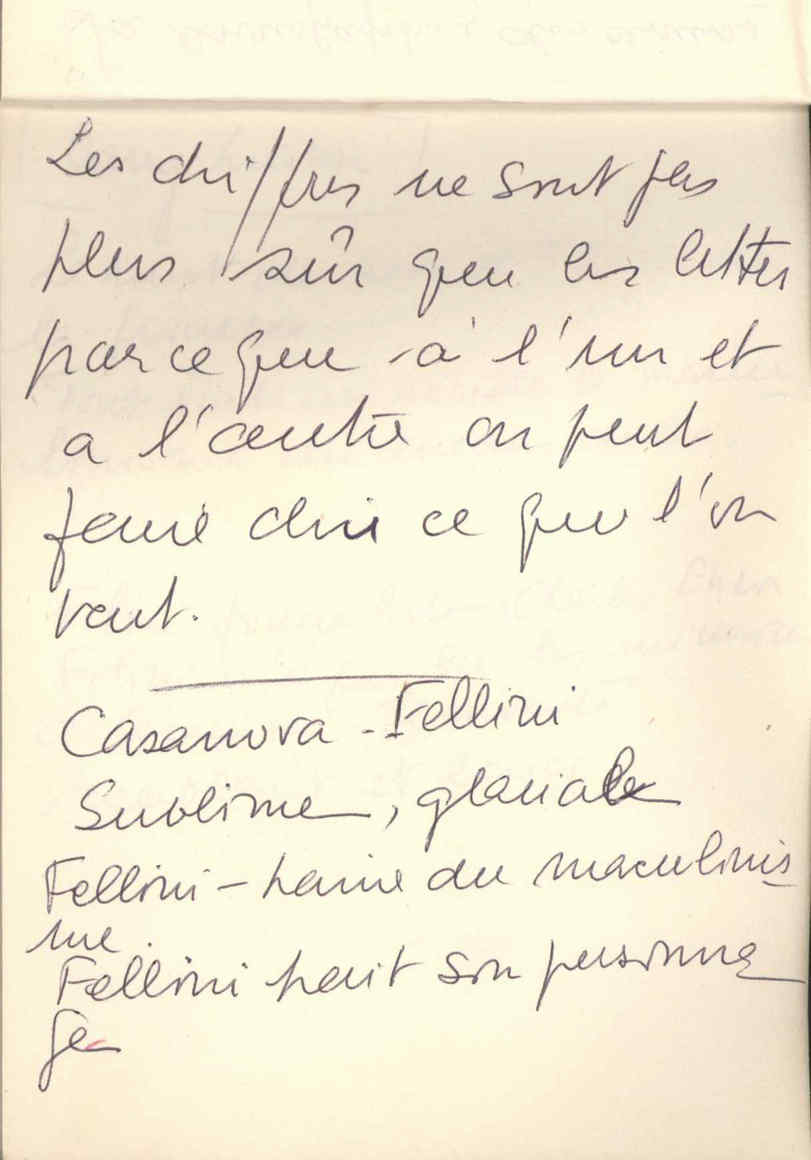 Les chiffres ne sont pas
plus sûr que les lettres
parce que - à l'un et
a l'autre on peut
faire dire ce que l'on
veut.
Casanova - Fellini
Sublime, glaciale
Fellini - haine du maculinis
me.
Fellini hait son personna
ge